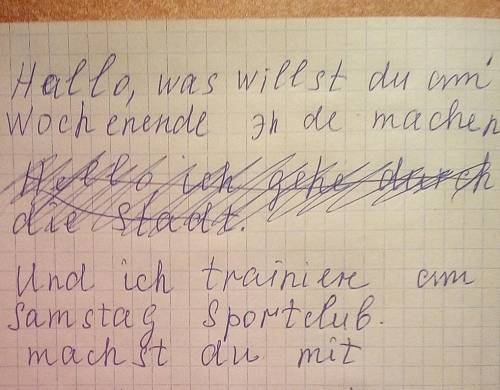 Hallo, was willst du am
Wochenende эн de machen
Hallo, ich gehe durch
die Stadt.
Und ich trainiere am
Samstag Sportclub.
machst du mit